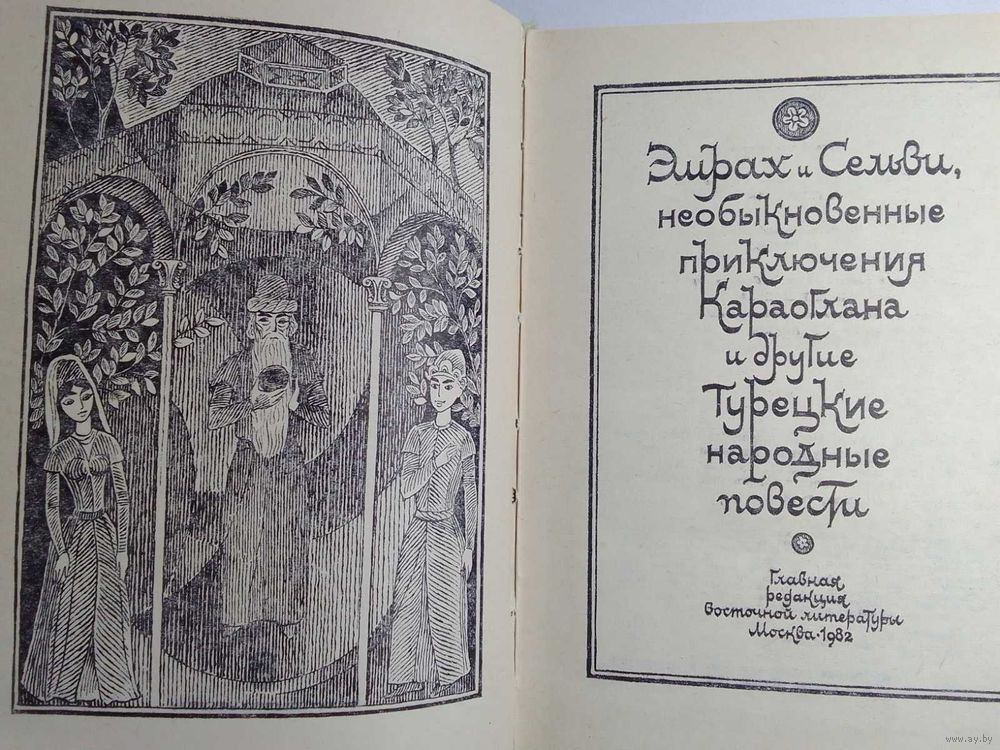 Эмрах и Сельви,
необыкновенные
приключения
Караоглана
и другие
турецкие
народные
повести
Главная
редакция
восточной литературы
Москва·1982
www.ay.by